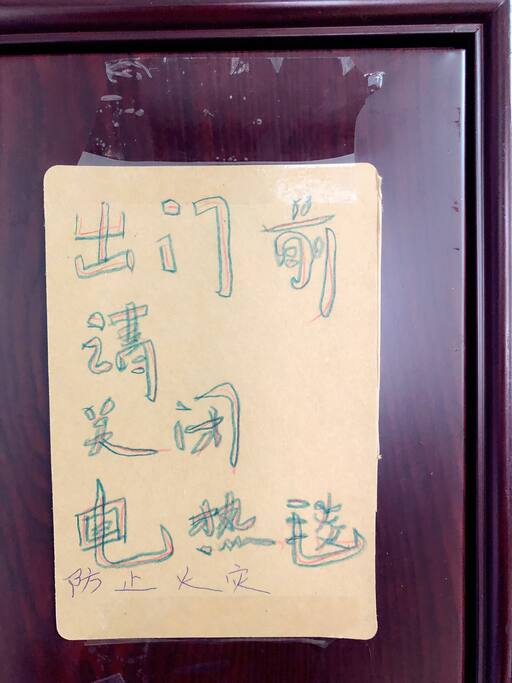 出门前
请
关闭
电热毯
防止火灾